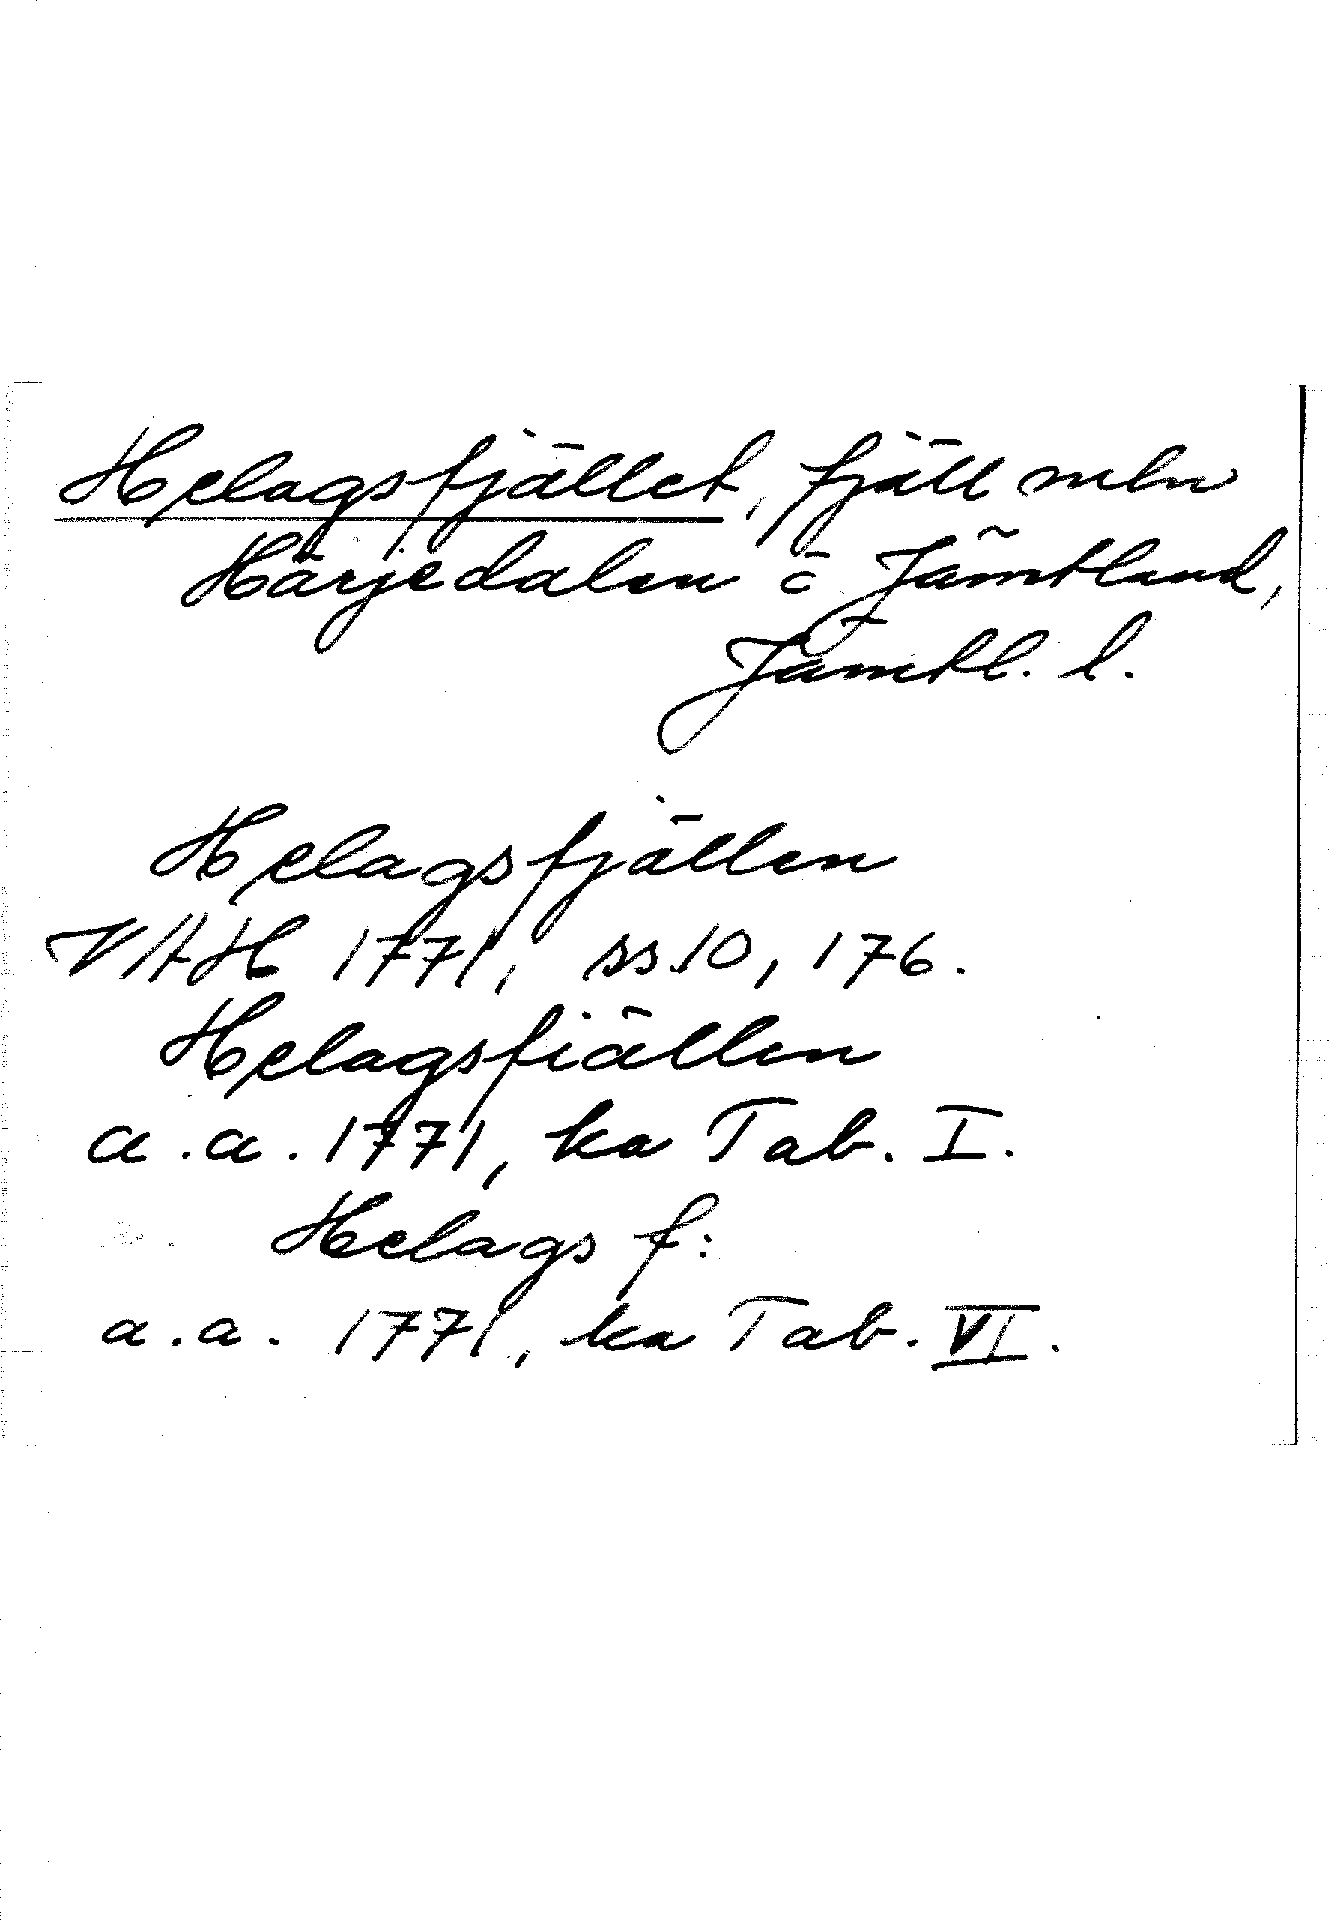 Helagsfjället, fjäll mln
Härjedalen o Jämtland,
Jämtl. l.
Helagsfjällen
VAH 1771, ss.10, 176.
Helagsfiällen
a.a. 1771, ka Tab. I.
Helags f:
a.a. 1771, ka Tab. VI.